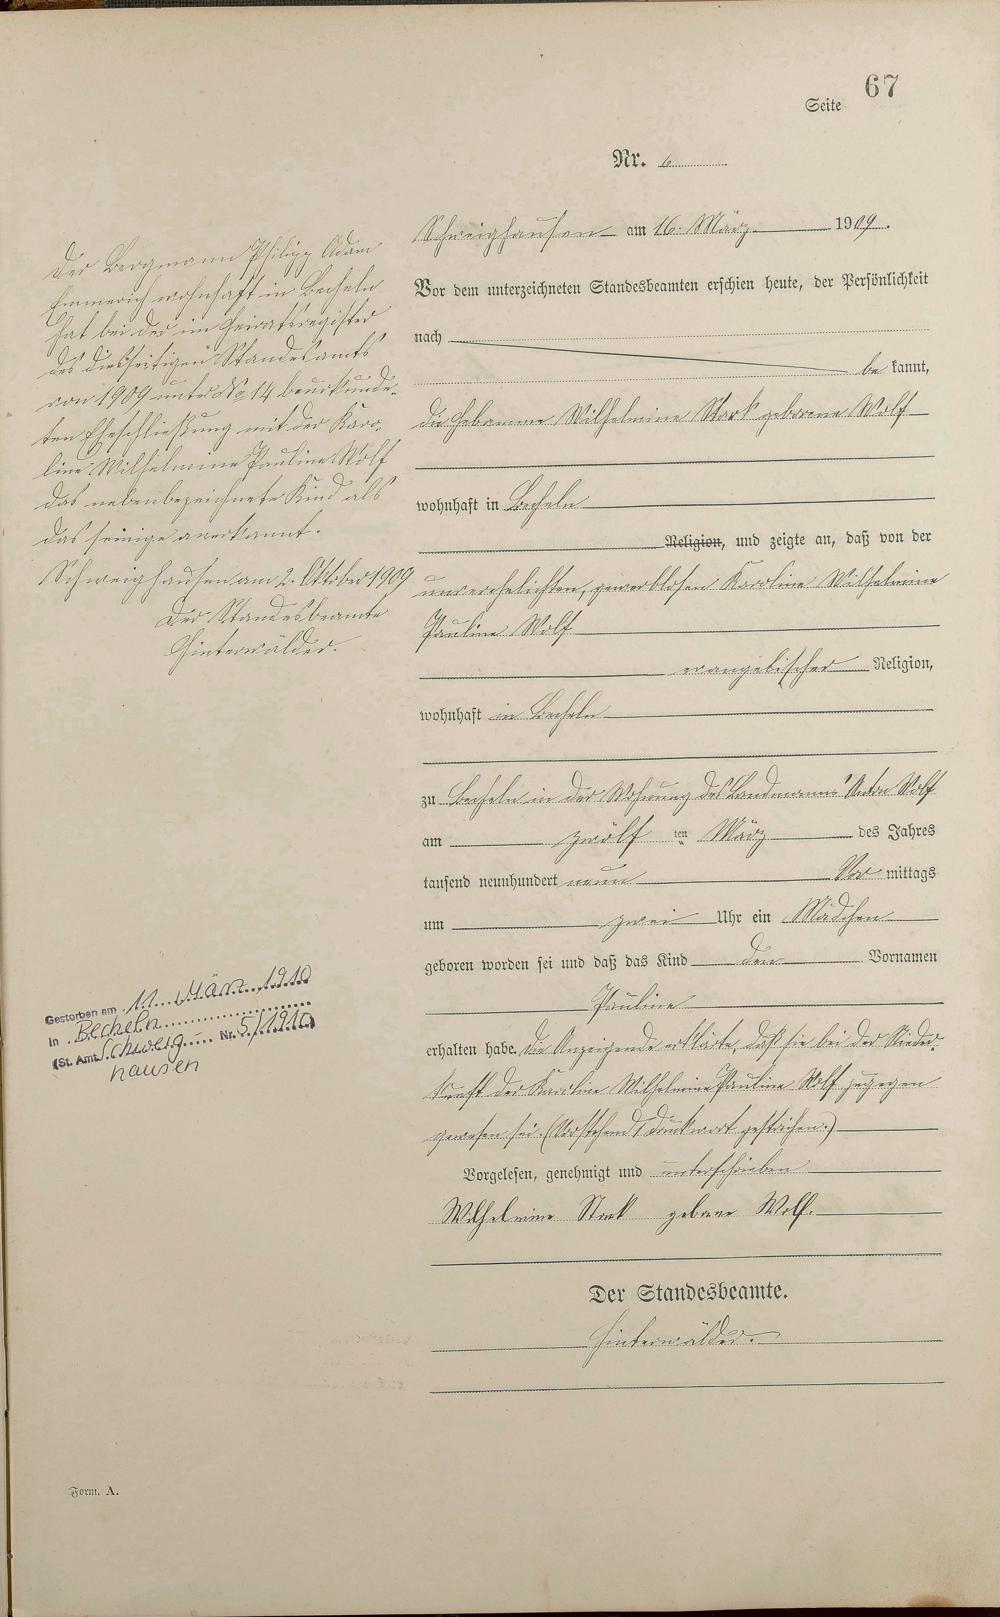 Seite 67
Nr. 6
Der Bergmann Philipp Adam
Emmerich wohnhaft in Becheln
hat bei der im Heiratsregister
des diesseitigen Standesamts
von 1909 unter No 14 beurkunde-
ten Eheschließung mit der Karo-
line Wilhelmine Pauline Wolf
das nebenbezeichnete Kind als
das seinige anerkannt.
Schweighausen am 2. Oktober 1909
Der Standesbeamte
Hinterwälder.
Gestorben am 11. März 1910
in Becheln
(St. Amt Schweig- Nr. 5/1910)
hausen
Schweighausen am 16. März 1909.
Vor dem unterzeichneten Standesbeamten erschien heute, der Persönlichkeit
nach
be kannt,
die Hebamme Wilhelmine Stark geborene Wolf
wohnhaft in Becheln
Religion, und zeigte an, daß von der
unverehelichten, gewerblosen Karoline Wilhelmine
Pauline Wolf
evangelischer Religion,
wohnhaft in Becheln
zu Becheln in der Wohnung des Landmanns Anton Wolf
am zwölf ten März des Jahres
tausend neunhundert neun Vor mittags
um zwei Uhr ein Mädchen
geboren worden sei und daß das Kind den Vornamen
Pauline
erhalten habe. Die Anzeigende erklärte, daß sie bei der Nieder-
kunft der Karoline Wilhelmine Pauline Wolf zugegen
gewesen sei. (Vorstehend 1 Druckwort gestrichen.)
Vorgelesen, genehmigt und unterschrieben
Wilhelmine Stark geborene Wolf.
Der Standesbeamte.
Hinterwälder.
Form. A.